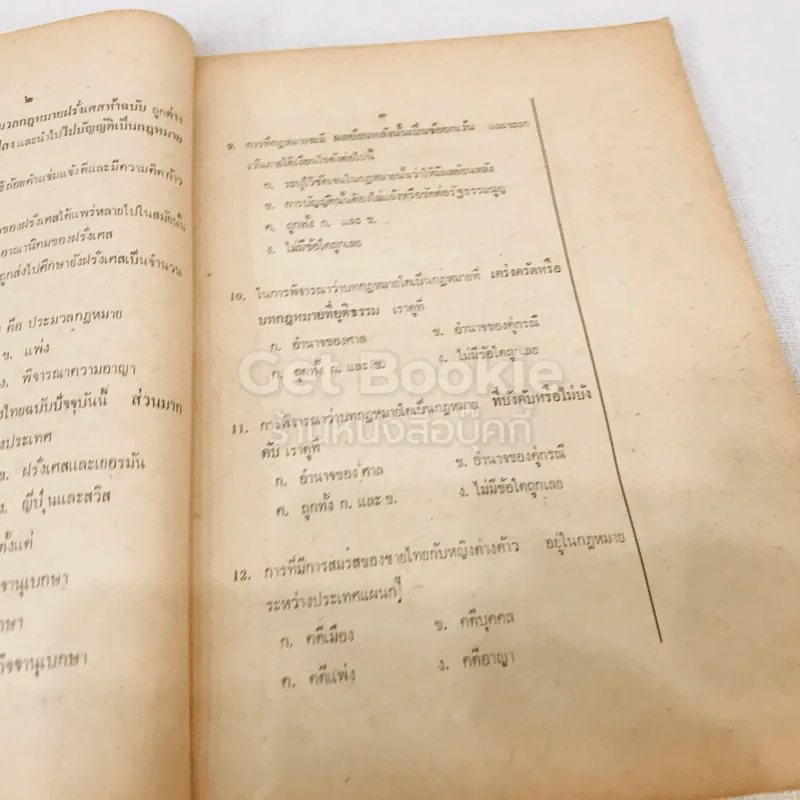 ๒
มวลกฎหมายฝรั่งเศสห้าฉบับ ถูกต่าง
และนำไปบัญญัติเป็นกฎหมาย
ถ้อยคำแจ่มแจ้งดีและมีความคิดก้าว
ของฝรั่งเศสได้แพร่หลายไปในสมัยนั้น
อาณานิคมของฝรั่งเศส
ถูกส่งไปศึกษายังฝรั่งเศสเป็นจำนวน
คือ ประมวลกฎหมาย
ข. แพ่ง
ง. พิจารณาความอาญา
ไทยฉบับปัจจุบันนี้ ส่วนมาก
งประเทศ
ข. ฝรั่งเศสและเยอรมัน
ง. ญี่ปุ่นและสวิส
ตั้งแต่
จานุเบกษา
กษา
กิจจานุเบกษา
๓
9. การที่กฎหมายจะมี ผลย้อนหลังนั้นเป็นข้อยกเว้น และจะยก
เว้นภายใต้เงื่อนไขดังต่อไปนี้
ก. ระบุไว้ชัดเจนในกฎหมายนั้นว่าให้มีผลย้อนหลัง
ข. การบัญญัตินั้นต้องไม่แย้งหรือขัดต่อรัฐธรรมนูญ
ค. ถูกทั้ง ก. และ ข.
ง. ไม่มีข้อใดถูกเลย
10. ในการพิจารณาว่าบทกฎหมายใดเป็นกฎหมายที่ เคร่งครัดหรือ
บทกฎหมายที่ยุติธรรม เราดูที่
ก. อำนาจของศาล ข. อำนาจของคู่กรณี
ค. ถูกทั้ง ก. และ (ข.) ง. ไม่มีข้อใดถูกเลย
Get Bookie
11. การพิจารณาว่าบทกฎหมายใดเป็นกฎหมาย ที่บังคับหรือไม่บัง
ร้านหนังสือบุ๊คกี้
คับ เราดูที่
ก. อำนาจของศาล ข. อำนาจของคู่กรณี
ค. ถูกทั้ง ก. และ ข. ง. ไม่มีข้อใดถูกเลย
12. การที่มีการสมรสของชายไทยกับหญิงต่างด้าว อยู่ในกฎหมาย
ระหว่างประเทศแผนก
ก. คดีเมือง ข. คดีบุคคล
ค. คดีแพ่ง ง. คดีอาญา